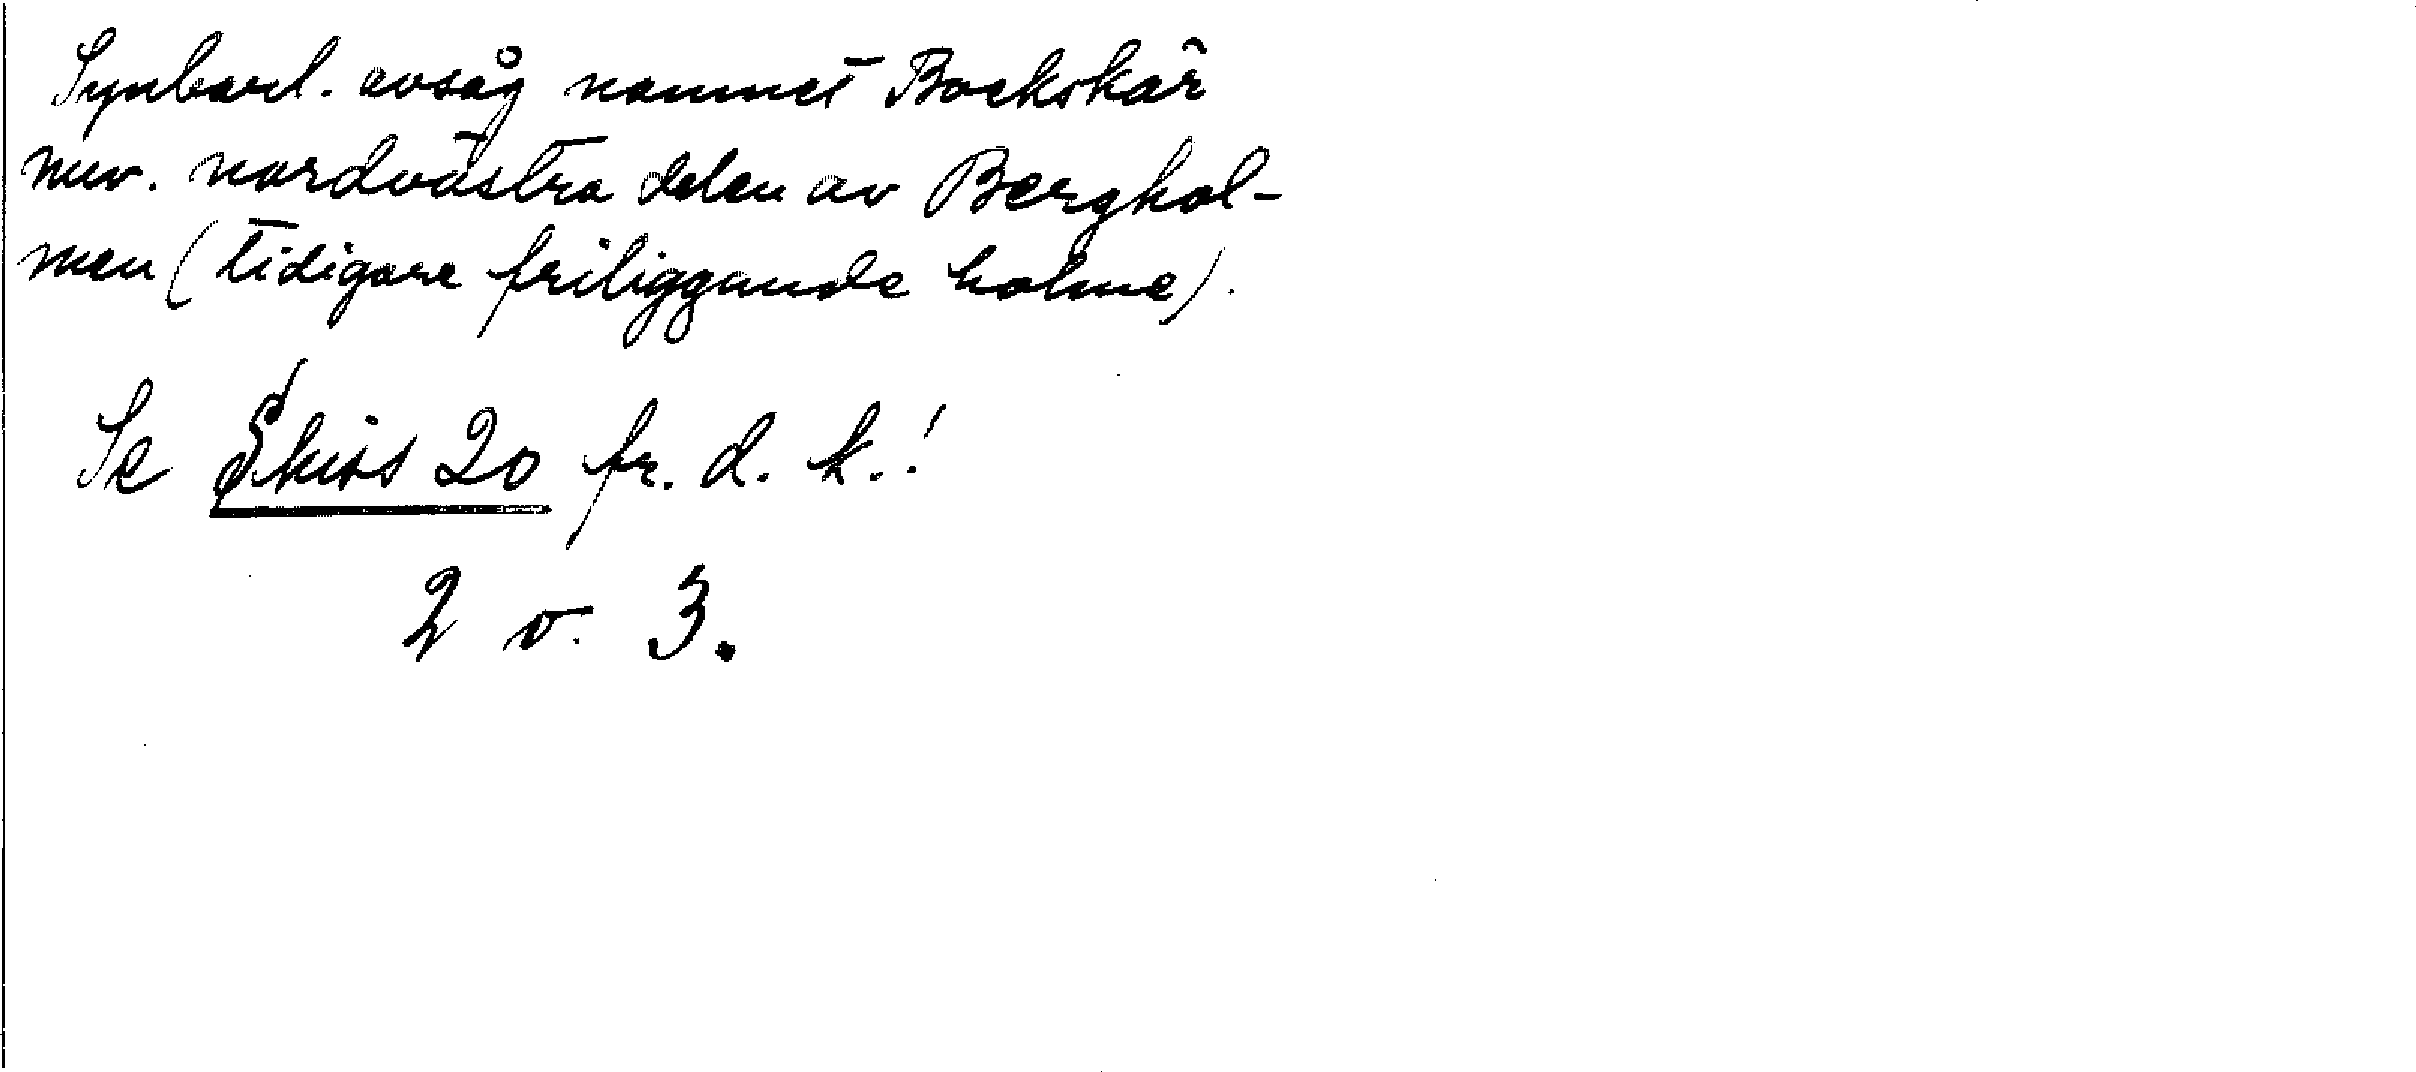 Synbarl. avsåg namnet Bockskär
nuv. nordvästra delen av Berghol-
men (tidigare friliggande holme).
Se Skiss 20 fr. d. k.!
2 v. 3.